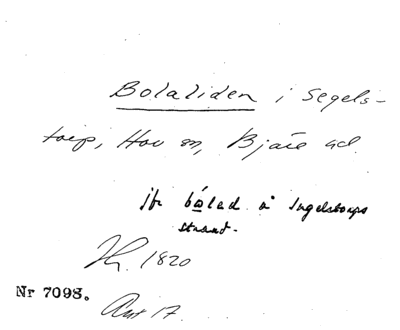 Bolaliden i Segels-
torp, Hov sn, Bjäre hd.
jfr bolad å Ingelstorps
strand.
1820
Nr 7098.
Ant 17